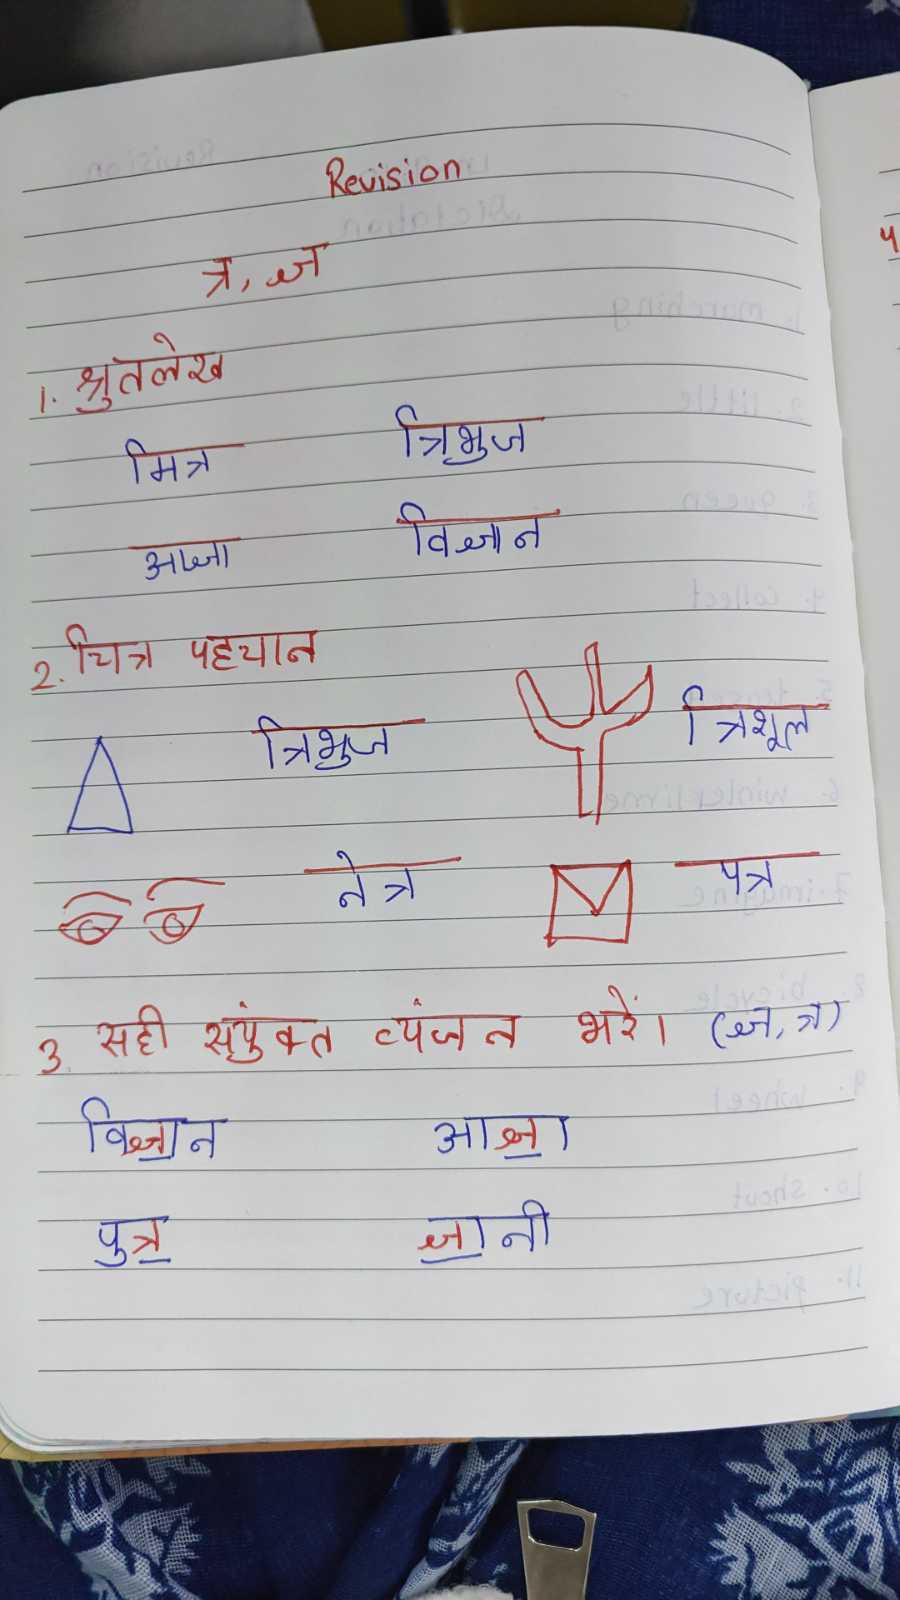 Revision
त्र, ज्ञ
1. श्रुतलेख
मित्र त्रिभुज
आज्ञा विज्ञान
2. चित्र पहचान
त्रिभुज त्रिशूल
नेत्र पत्र
3. सही संयुक्त व्यंजन भरें। (ज्ञ, त्र)
विज्ञान आज्ञा
पुत्र ज्ञानी